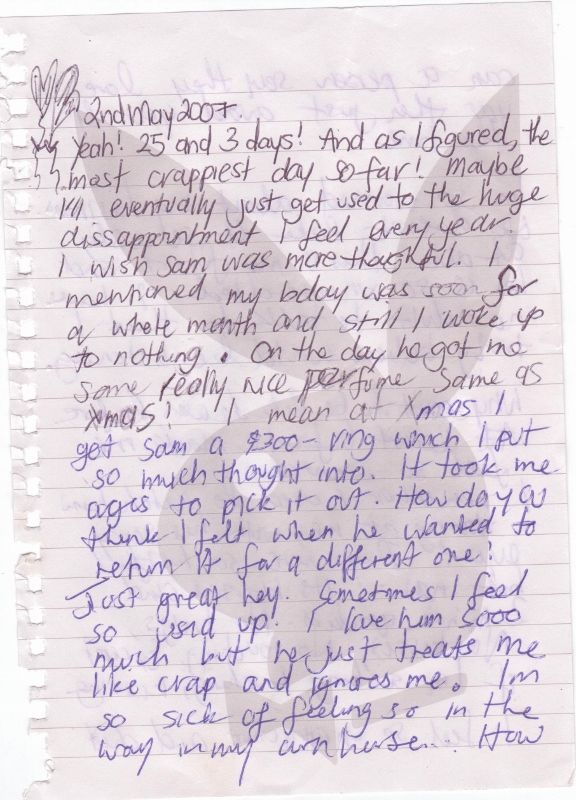 2nd May 2007.
Yeah! 25 and 3 days! And as I figured, the
most crappiest day so far! Maybe
I'll eventually just get used to the huge
dissappointment I feel every year.
I wish Sam was more thoughtful. I
mentioned my bday was soon for
a whole month and still I woke up
to nothing. On the day he got me
some really nice perfume same as
Xmas! I mean at Xmas I
got Sam a £300- ring which I put
so much thought into. It took me
ages to pick it out. How do you
think I felt when he wanted to
return it for a different one!
Just great hey. Sometimes I feel
so used up! I love him sooo
much but he just treats me
like crap and ignores me. Im
so sick of feeling so in the
way in my own house... How